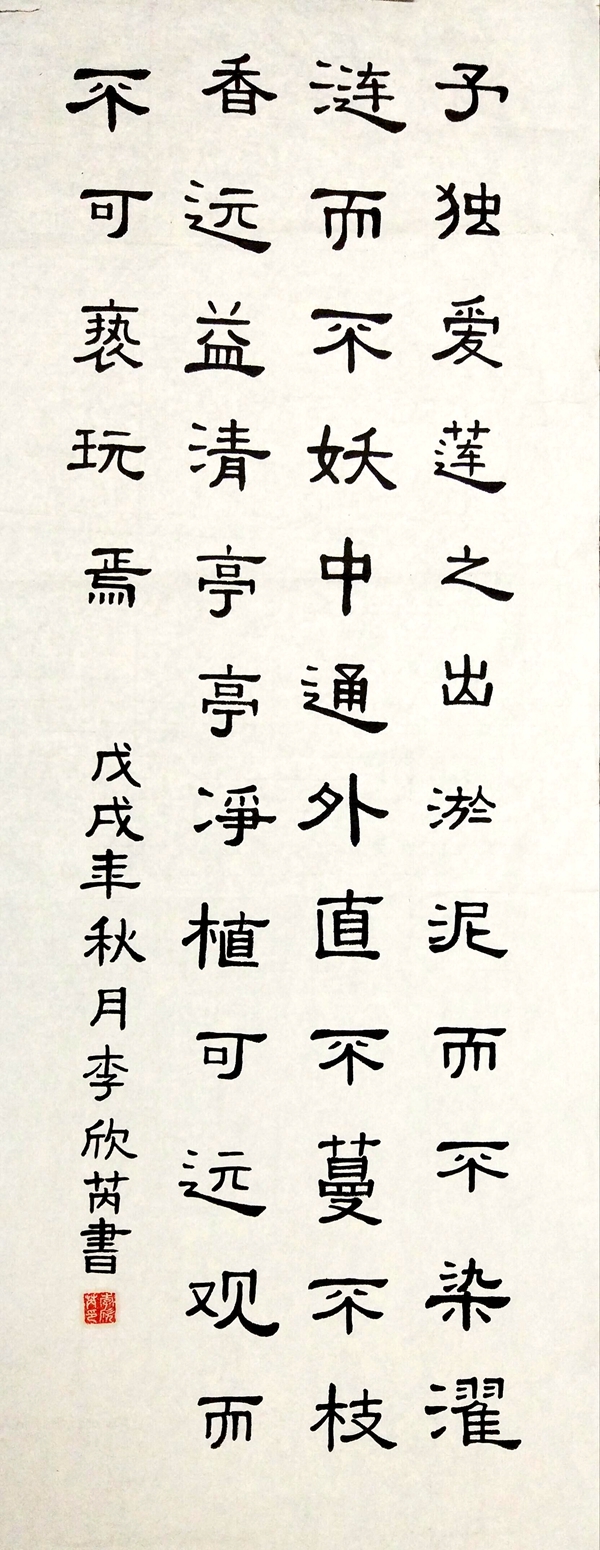 予独爱莲之出淤泥而不染濯
涟而不妖中通外直不蔓不枝
香远益清亭亭淨植可远观而
不可亵玩焉
戊戌年秋月李欣芮書